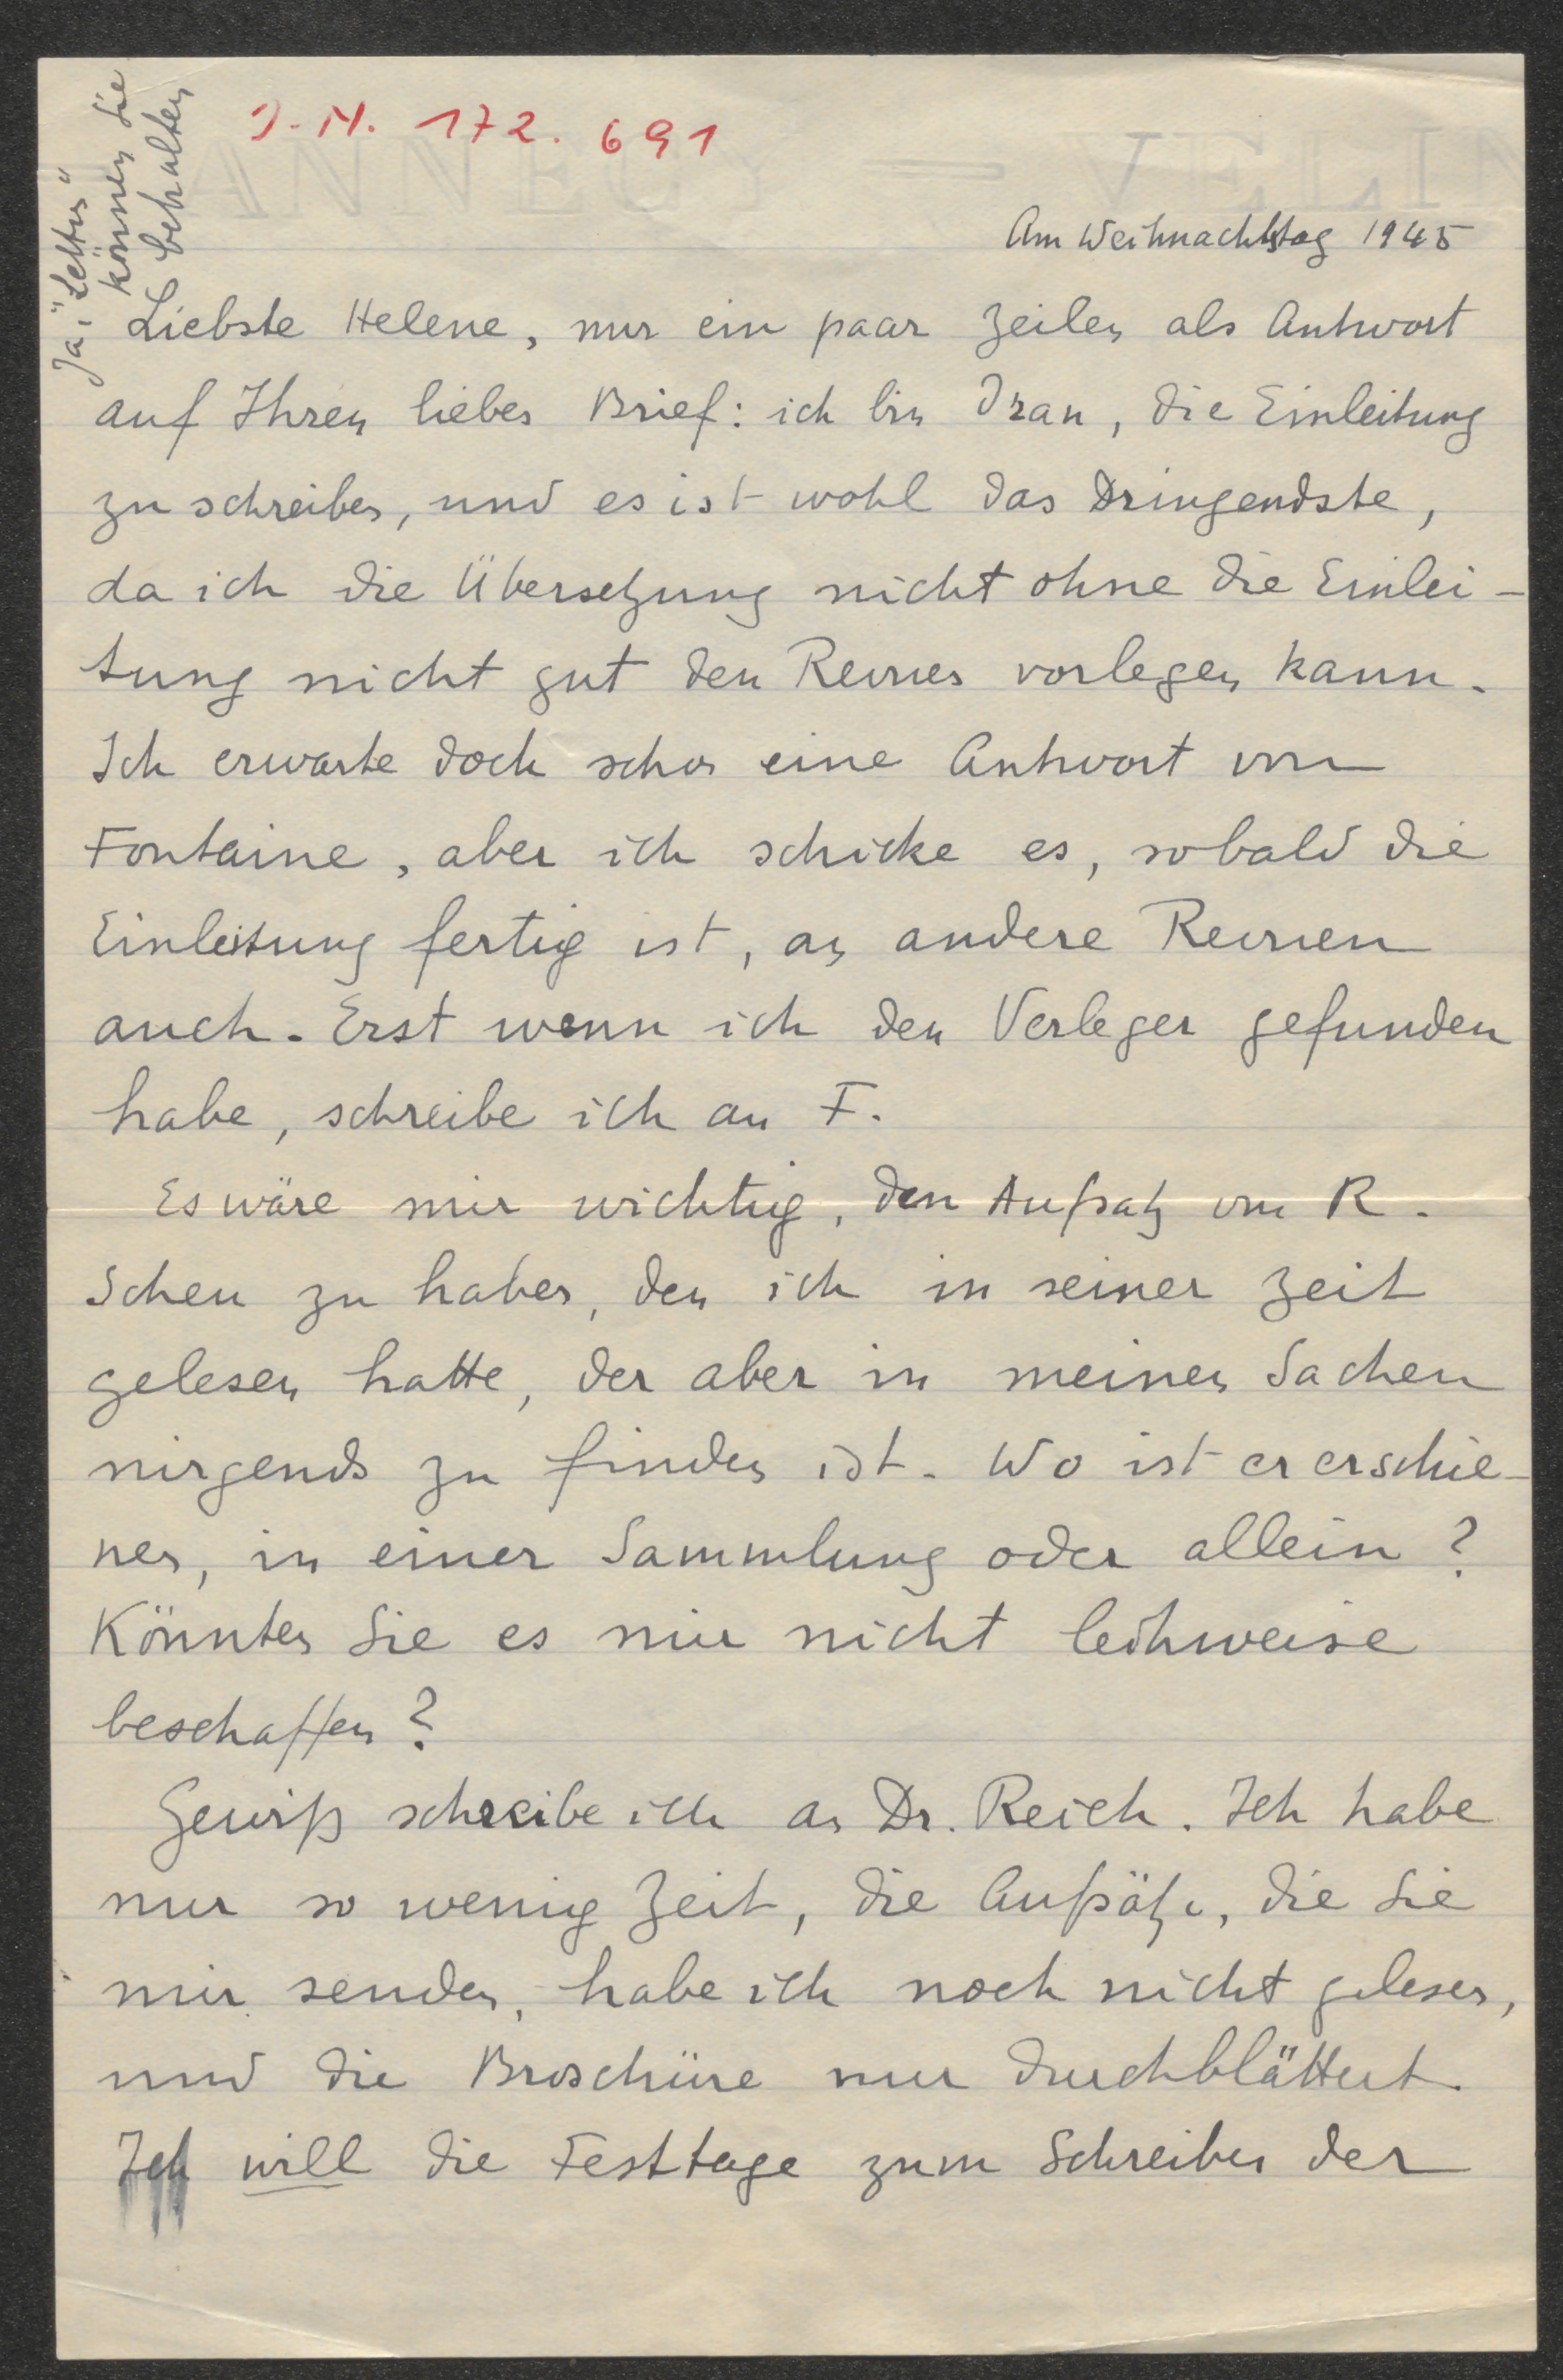 Ja, "Lettres"
können Sie
behalten
I.N. 172.691
Am Weihnachtstag 1945
Liebste Helene, nur ein paar Zeilen als Antwort
auf Ihren lieben Brief: ich bin dran, die Einleitung
zu schreiben, und es ist wohl das Dringendste,
da ich die Übersetzung nicht ohne die Einlei-
tung nicht gut den Revues vorlegen kann.
Ich erwarte doch schon eine Antwort von
Fontaine, aber ich schicke es, sobald die
Einleitung fertig ist, an andere Revuen
auch. Erst wenn ich den Verleger gefunden
habe, schreibe ich an F.
Es wäre mir wichtig, den Aufsatz von R.
Scheu zu haben, den ich in seiner Zeit
gelesen hatte, der aber in meinen Sachen
nirgends zu finden ist. Wo ist er erschie-
nen, in einer Sammlung oder allein?
Könnten Sie es mir nicht leihweise
beschaffen?
Gewiß schreibe ich an Dr. Reich. Ich habe
nur so wenig Zeit, die Aufsätze, die Sie
mir senden, habe ich noch nicht gelesen,
und die Broschüre nur durchblättert.
Ich will die Festtage zum Schreiben der